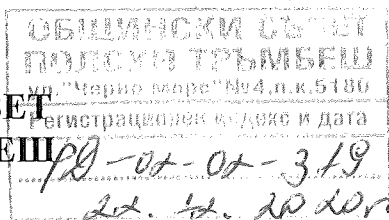 ОБЩИНСКИ СЪВЕТ
ПОЛСКИ ТРЪМБЕШ
ул."Черно море"№4,п.к.5180
ЕТ
Регистрационен индекс и дата
ЕШ
РД-02-02-319